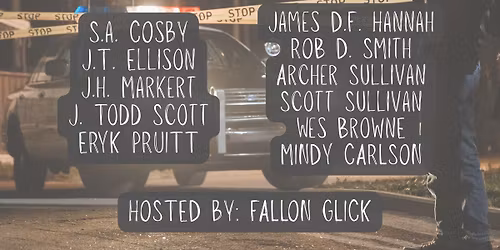 STOP STOP STOP
S.A. COSBY
J.T. ELLISON
J.H. MARKERT
J. TODD SCOTT
ERYK PRUITT
JAMES D.F. HANNAH
ROB D. SMITH
ARCHER SULLIVAN
SCOTT SULLIVAN
WES BROWNE
MINDY CARLSON
HOSTED BY: FALLON GLICK